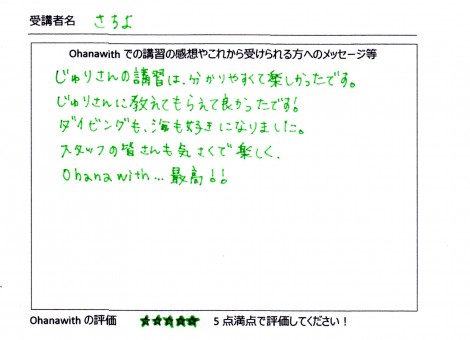 受講者名 さちよ
Ohanawith での講習の感想やこれから受けられる方へのメッセージ等
じゅりさんの講習は、分かりやすくて楽しかったです。
じゅりさんに教えてもらえて良かったです!
ダイビングも、海も好きになりました。
スタッフの皆さんも気さくで楽しく、
Ohanawith... 最高!!
Ohanawith の評価 ★★★★★ 5 点満点で評価してください!